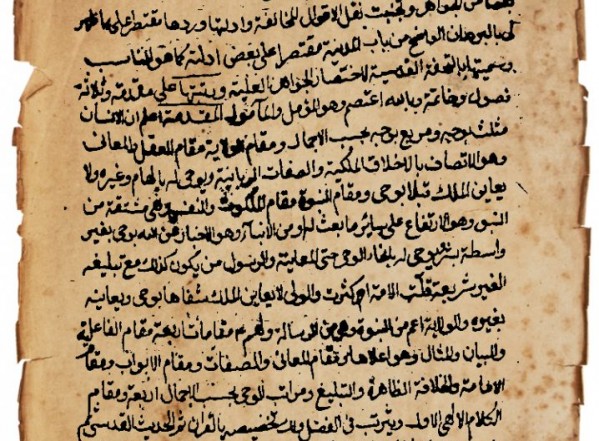 بعضها من الجواهر وتجنبت نقل الاقوال المخالفة وادلتها وردها مقتصرا على ما ظهر
لي بالبرهان الواضح من باب المدينة مقتصرا على بعض ادلته كما هو المناسب
وسميتها بالتحفة القدسية لاختصار الجواهر العلية ورتبتها على مقدمة وثلاثة
فصول وخاتمة وبالله اعتصم وهو المؤمل والمأمول المقدمة اعلم ان الانسان
مثلث بوجه ومربع بوجه بحسب الاجمال ومقام الولاية مقام العقل والمعاني
وهو الاتصاف بالاخلاق الملكية والصفات الربانية ويوحى له بالهام وغيره ولا
يعاين الملك قبلا بوحي ومقام النبوة مقام الملكوت والنفس وهي مشتقة من
النبو وهو الارتفاع على سائر ما بعث له او من الانباء وهو الاخبار عن الله بوحي بغير
واسطة بشر ويوحى له بانحاء الوحي حتى المعاينة والرسول من يكون كذلك مع تبليغه
الغير شريعة قلت الامة ام كثرت والولي لا يعاين الملك شفاها بوحي ويعاينه
بغيره والولاية اعم من النبوة وهي من الرسالة ولهم مقامات اربعة مقام الفاعلية
والبيان والمثال وهو اعلاها ثم مقام المعاني والصفات ومقام الابواب ومقام
الامامة والخلافة الظاهرة والتبليغ ومراتب الوحي بحسب الاجمال اربعة ومقام
الكلام الالهي الاول ويترتب في الفضل ولذا تخصيصه بالقران ثم الحديث القدسي ثم